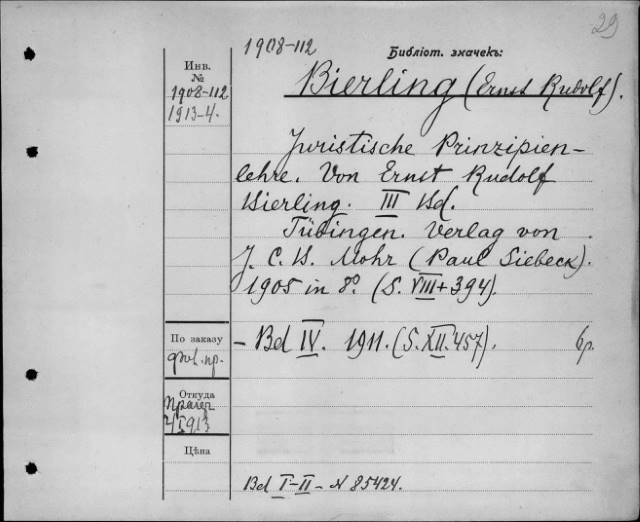 29
1908-112
Библіот. значекъ:
Инв.
№
1908-112
1913-4.
Bierling (Ernst Rudolf).
Juristische Prinzipien-
lehre. Von Ernst Rudolf
Bierling. III Bd.
Tübingen. Verlag von
J. C. B. Mohr (Paul Siebeck).
1905 in 8º. (S. VIII + 394).
По заказу
- Bd IV. 1911. (S. XII. 457). бр.
Откуда
1913
Цѣна
Bd I-II - N 85424.